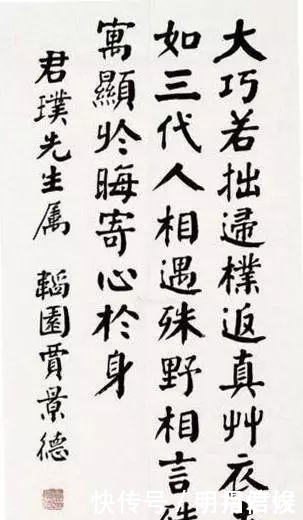 大巧若拙歸樸返真艸衣
如三代人相遇殊野相言
寓顯於晦寄心於身
君璞先生属 韜園賈景德
快传号